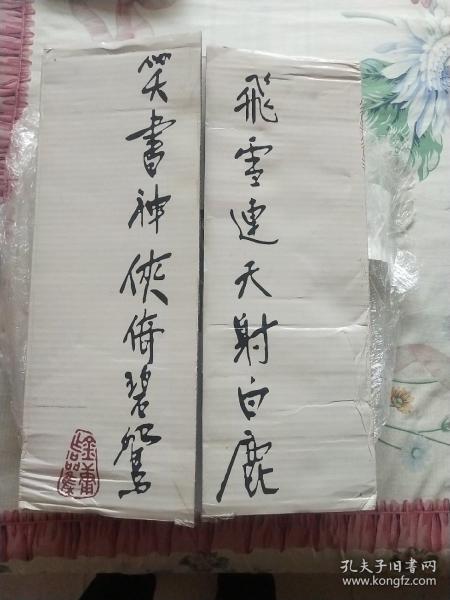 飛雪連天射白鹿
笑書神俠倚碧鴛
金庸
孔夫子旧书网
www.kongfz.com